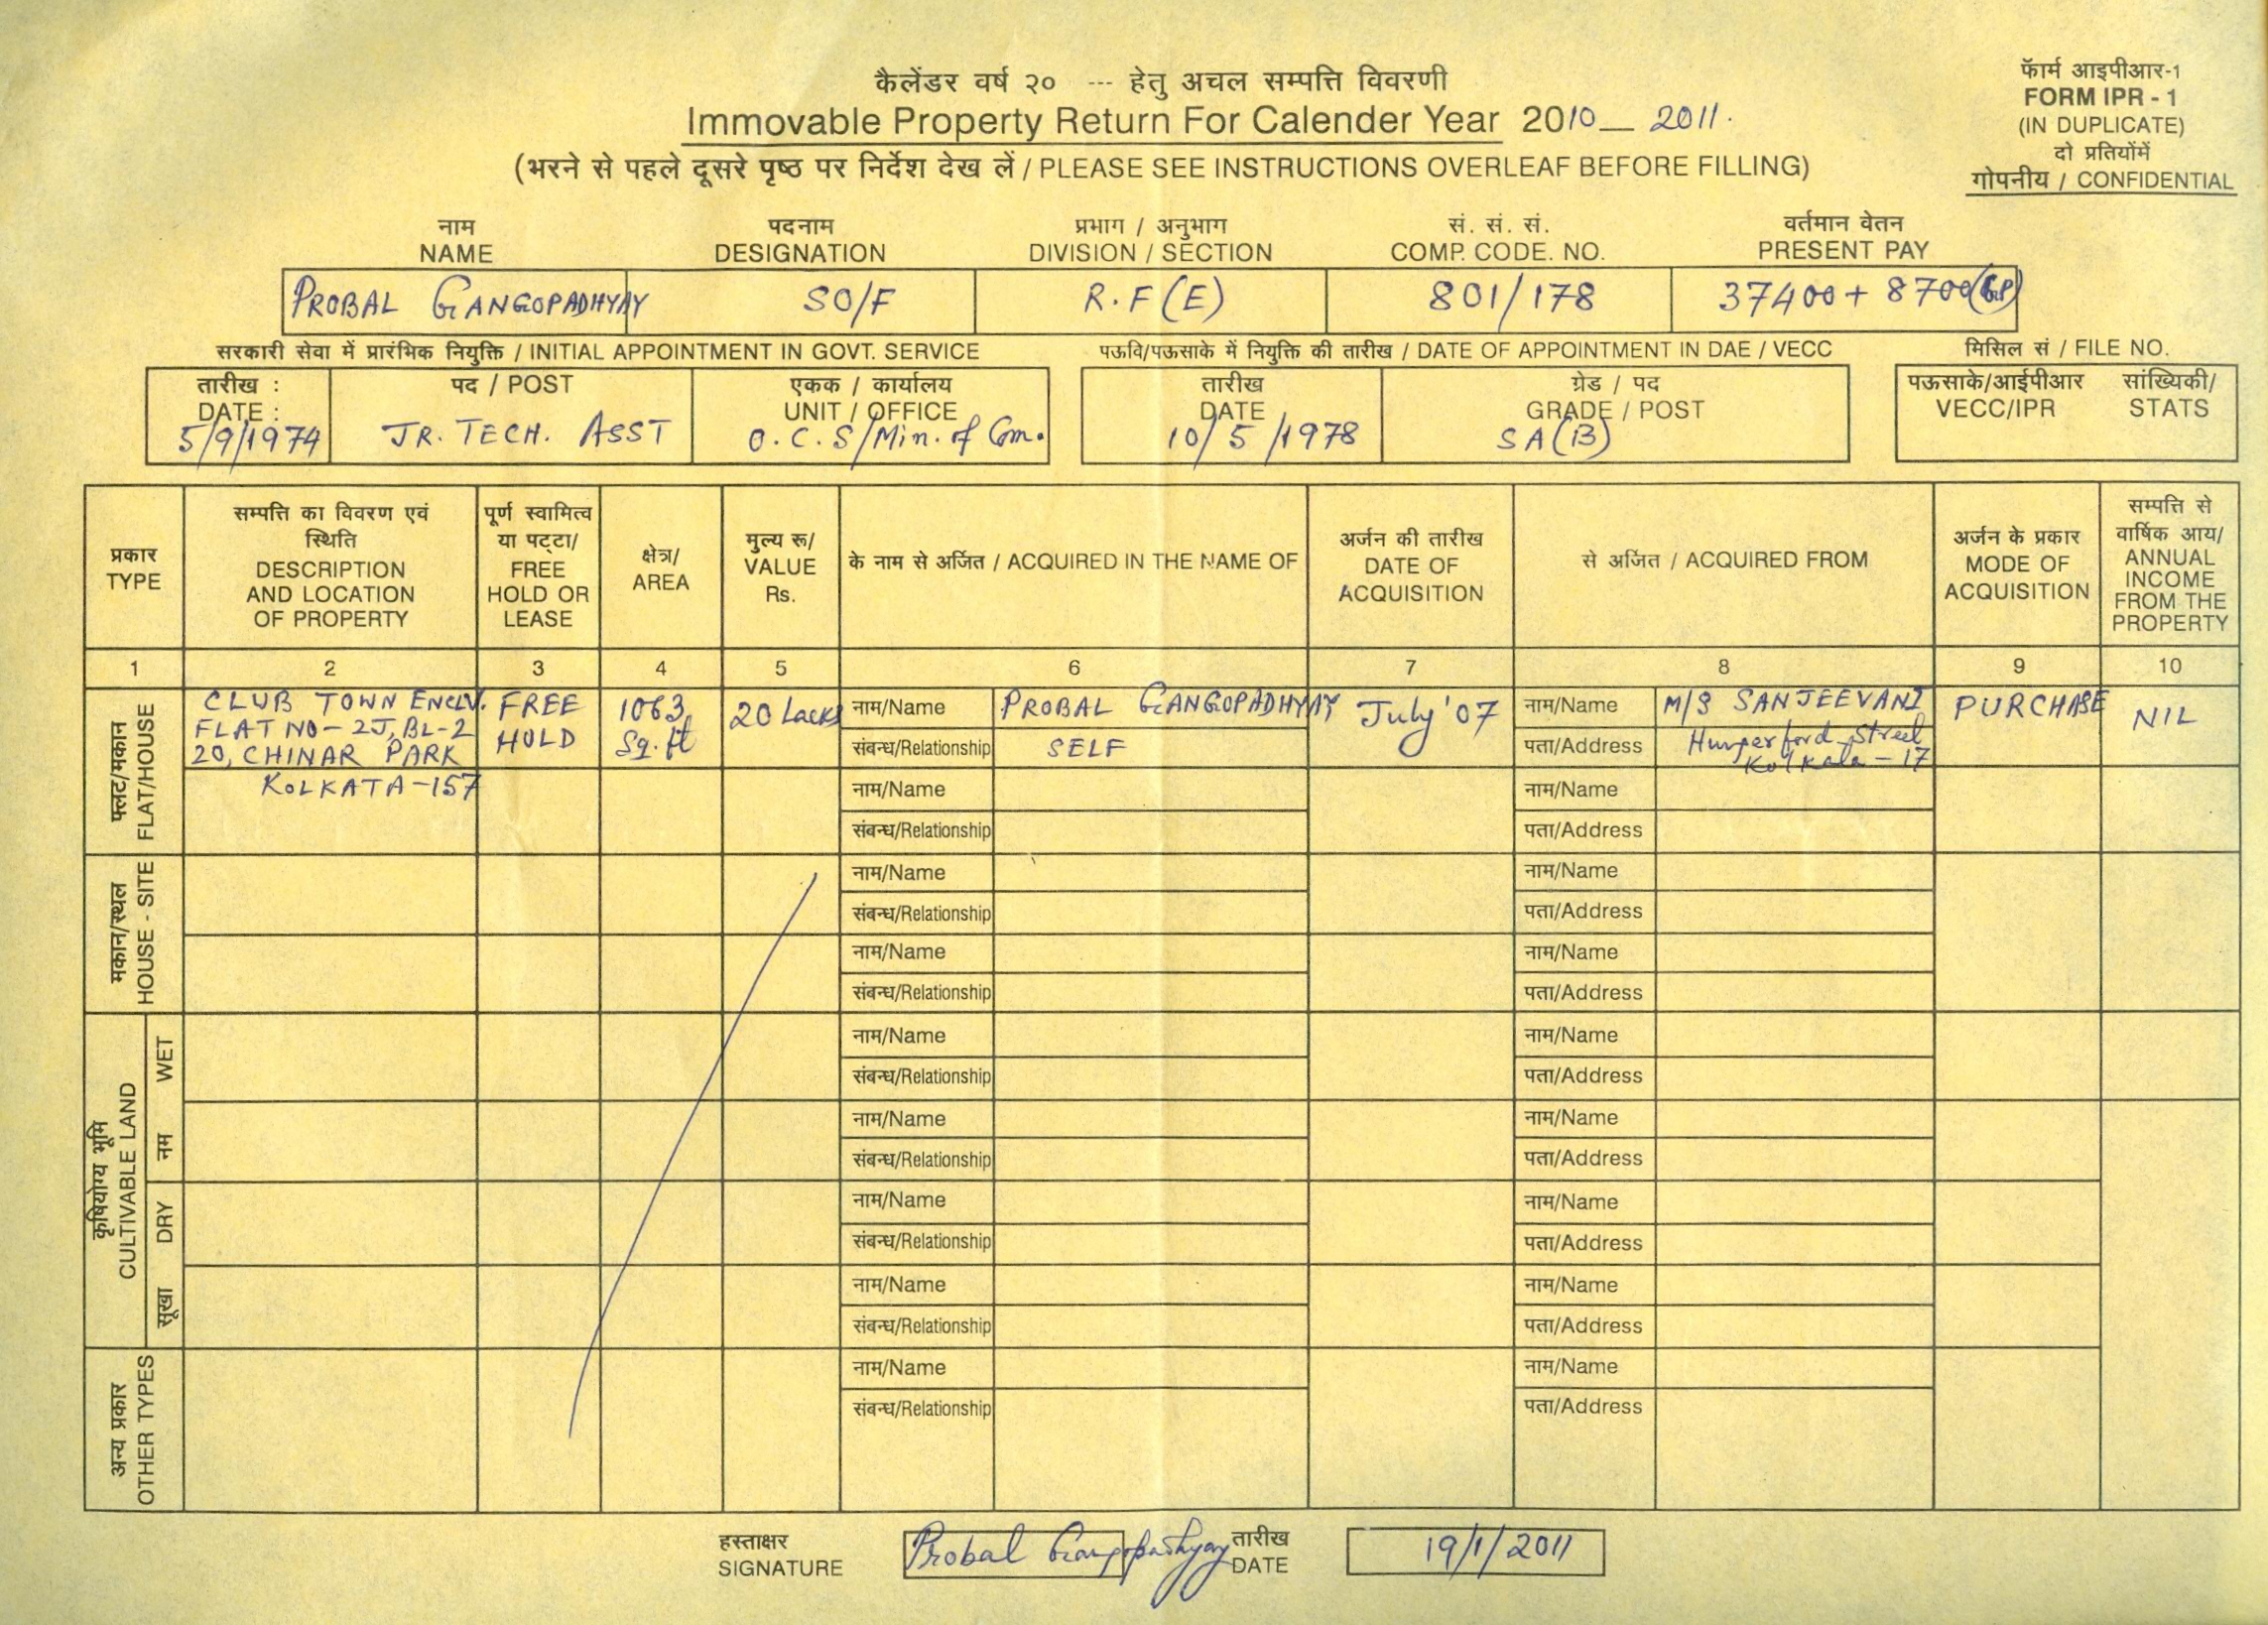 कैलेंडर वर्ष २० --- हेतु अचल सम्पत्ति विवरणी
Immovable Property Return For Calender Year 2010__ 2011.
(भरने से पहले दूसरे पृष्ठ पर निर्देश देख लें / PLEASE SEE INSTRUCTIONS OVERLEAF BEFORE FILLING)
फॅार्म आइपीआर-1
FORM IPR - 1
(IN DUPLICATE)
दो प्रतियोंमें
गोपनीय / CONFIDENTIAL
नाम पदनाम प्रभाग / अनुभाग सं. सं. सं. वर्तमान वेतन
NAME DESIGNATION DIVISION / SECTION COMP. CODE. NO. PRESENT PAY
PROBAL GANGOPADHYAY SO/F R.F (E) 801/178 37400 + 8700(GP)
सरकारी सेवा में प्रारंभिक नियुक्ति / INITIAL APPOINTMENT IN GOVT. SERVICE पऊवि/पऊसाके में नियुक्ति की तारीख / DATE OF APPOINTMENT IN DAE / VECC मिसिल सं / FILE NO.
तारीख : पद / POST एकक / कार्यालय तारीख ग्रेड / पद पऊसाके/आईपीआर सांख्यिकी/
DATE : UNIT / OFFICE DATE GRADE / POST VECC/IPR STATS
5/9/1974 JR. TECH. ASST O.C.S/Min. of Com. 10/5/1978 SA(B)
प्रकार
TYPE
सम्पत्ति का विवरण एवं
स्थिति
DESCRIPTION
AND LOCATION
OF PROPERTY
पूर्ण स्वामित्व
या पट्टा/
FREE
HOLD OR
LEASE
क्षेत्र/
AREA
मुल्य रू/
VALUE
Rs.
के नाम से अर्जित / ACQUIRED IN THE NAME OF
अर्जन की तारीख
DATE OF
ACQUISITION
से अर्जित / ACQUIRED FROM
अर्जन के प्रकार
MODE OF
ACQUISITION
सम्पत्ति से
वार्षिक आय/
ANNUAL
INCOME
FROM THE
PROPERTY
1 2 3 4 5 6 7 8 9 10
फ्लट/मकान
FLAT/HOUSE
CLUB TOWN ENCLV.
FLAT NO-2J, BL-2
20, CHINAR PARK
KOLKATA-157
FREE
HOLD
1063
Sq. ft
20 Lacks
नाम/Name PROBAL GANGOPADHYAY
संबन्ध/Relationship SELF
July '07
नाम/Name M/S SANJEEVANI
पता/Address Hungerford Street
Kolkata-17
PURCHASE
NIL
नाम/Name नाम/Name
संबन्ध/Relationship पता/Address
मकान/स्थल
HOUSE - SITE
नाम/Name नाम/Name
संबन्ध/Relationship पता/Address
नाम/Name नाम/Name
संबन्ध/Relationship पता/Address
कृषियोग्य भूमि
CULTIVABLE LAND
नम WET
नाम/Name नाम/Name
संबन्ध/Relationship पता/Address
नाम/Name नाम/Name
संबन्ध/Relationship पता/Address
सूखा DRY
नाम/Name नाम/Name
संबन्ध/Relationship पता/Address
नाम/Name नाम/Name
संबन्ध/Relationship पता/Address
अन्य प्रकार
OTHER TYPES
नाम/Name नाम/Name
संबन्ध/Relationship पता/Address
हस्ताक्षर तारीख
SIGNATURE Probal Gangopadhyay DATE 19/1/2011